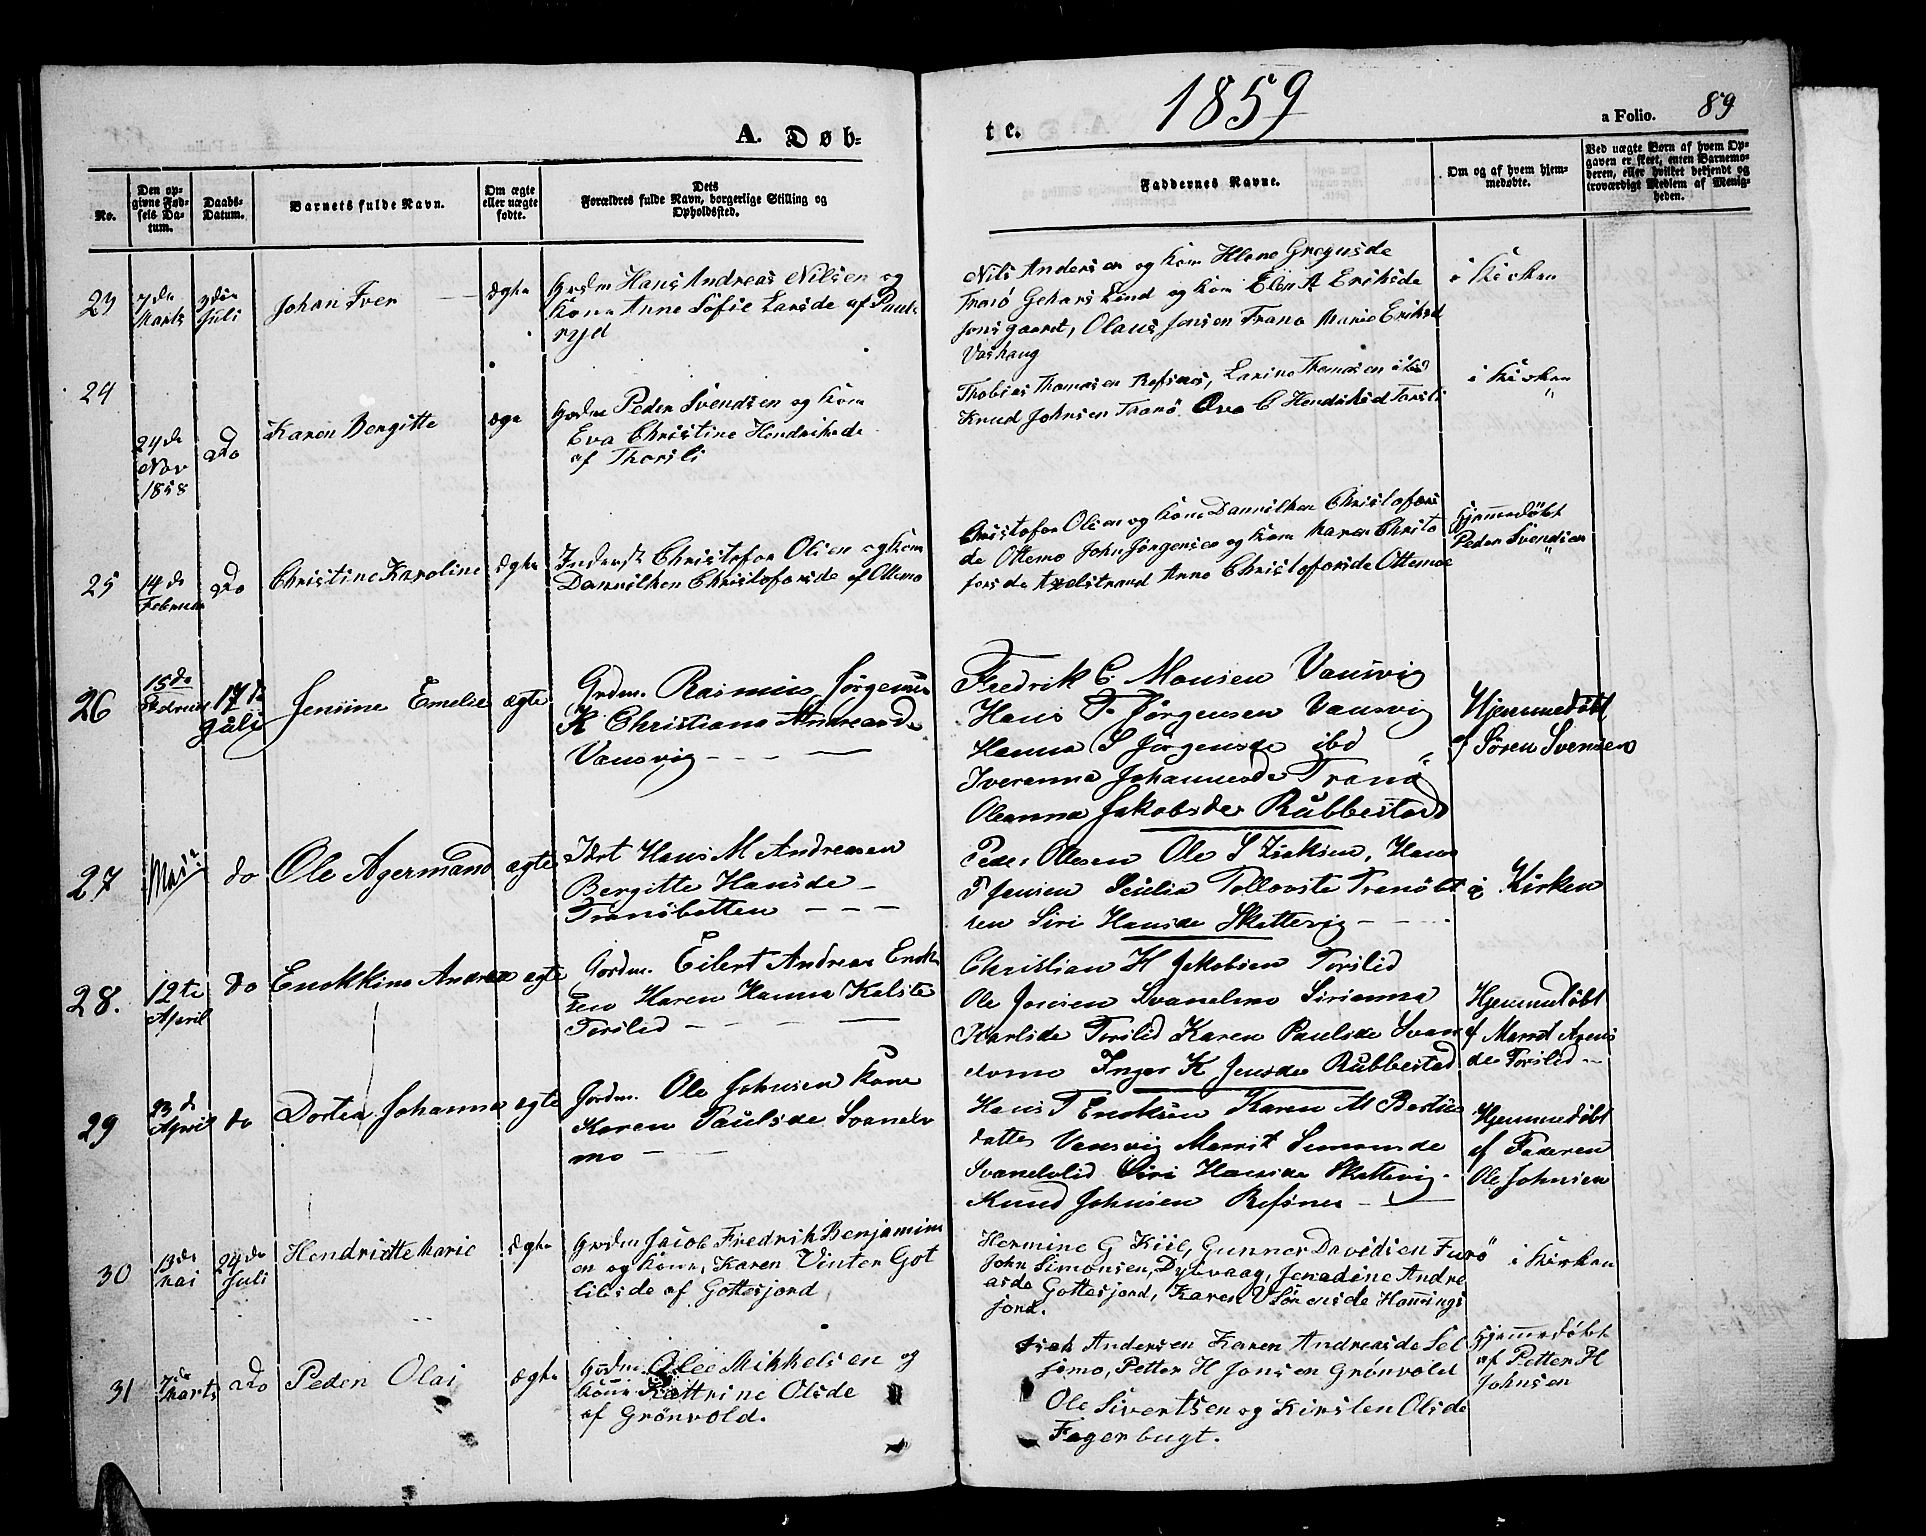 1859
A. Døb-
te.
a Folio. 89
No.
Den op-
givne Fød-
sels Da-
tum.
Daabs-
Datum.
Barnets fulde Navn.
Om ægte
eller uægte
fødte.
Dets
Forældres fulde Navn, borgerlige Stilling og
Opholdssted.
Faddernes Navne.
Om og af hvem hjem-
medøbte.
Ved uægte Børn af hvem Op-
gaven er skeet, enten Barnemo-
deren, eller hvilket bekjendt og
troværdigt Medlem af Menig-
heden.
23
7de
Marts
3die
Juli
Johan Iver
ægte
Grdm Hans Andreas Nilsen og
Kone Anne Sofie Larsde af Pauls
ryd
Nils Andersen og Kone Gregusde
Tranø Lind og Kone Elen A Eriksde
Jonsgaard, Olaus Jensen Tranø Marie Eriksd
Vashaug
i Kirken
24
24de
Nov
1858
Do
Karen Bergitte
ægte
Grdm Peder Svendsen og Kone
Eva Christine Hendriksde
af Thorsli
Thobias Thomasen Refsnes, Larine Thomasen ibid
Knud Johnsen Tranø. Eva C Hendriksd Torsli
i Kirken
25
14de
Februar
Do
Christine Karoline
ægte
Inderst Christofer Olsen og Kone
Danniken Christofersde af Ottemo
Christofer Olsen og Kone Danniken Christofers
de Ottemo John Jørgensen og Kone Maren Christo
fersde Anne Christofersde Ottemoe
Hjemmedøbt
Peder Svendsen
26
15de
Februar
17de
Juli
Jensine Emelie
ægte
Grdm. Rasmus Jørgensen
K Christiana Andreasde
Vansvig
Fredrik C. Monsen Vansvig
Hans P. Jørgensen Vansvig
Hanna S Jørgensde ibd
Iveranna Johannesde Tranø
Oleanna Jakobsde Rubbestad
Hjemmedøbt
af Søren Svensen
27
Mai
do
Ole Agermand
ægte
Idrt Hans M Andreasen
Bergitte Hansde
Tranøbotten
Peder Olesen Ole S Isaksen, Hans
P Jensen Tranøbot
ten Siri Hansde Skattevig
i Kirken
28.
12te
April
do
Enokkine Andrea
ægte
Gordm. Eilert Andreas Enok
sen Karen Hanna
Torslid
Christian H Jakobsen Torslid
Ole Jonsen Svanelvmo Sirianna
Karlsde Torslid Karen Paulsde Svan
elvmo Inger K Jensde Rubbestad
Hjemmedøbt
af Marrit Arens
de Torslid
29
23de
April
do
Dortea Johanna
ægte
Gordm. Ole Johnsen Kone
Karen Paulsde Svanelv
mo
Hans T Enoksen Karen M Bertius
datter Vansvig Marrit Simonsde
Svanelvlid Siri Hansde Skattevig
Knud Johnsen Refsnes
Hjemmedøbt
af Faderen
Ole Johnsen
30
13de
Mai
24de
Juli
Hendriette Marie
ægte
Grdm Jacob Fredrik Benjamins
en og Kone, Karen Vinter Got
libsde af Gottesjord
Hermine G Kiil, Gunner Davidsen Furø
John Simonsen, Dybvaag, Jenadine Andre
asde Gottesjord, Karen V Sørensde Hemmings
jord.
i Kirken
31
7de
Marts
Do
Peder Olai
ægte
Grdm Ole Mikkelsen og
Kone Kattrine Olsde
af Grønvold.
Isak Andersen Karen Andreasde Sel
jemo, Petter H Jonsen Grønvold
Ole Sivertsen og Kirsten Olsde
Fagerbugt.
Hjemmedøbt
af Petter H
Johnsen